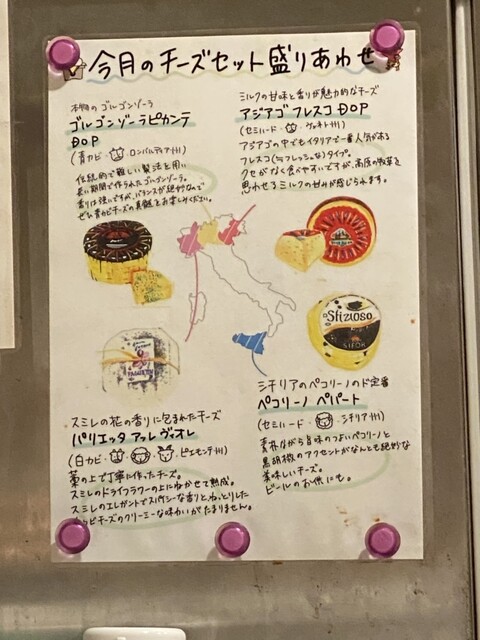 今月のチーズセット盛りあわせ
本物のゴルゴンゾーラ
ゴルゴンゾーラピカンテ
DOP
(青カビ・・ロンバルディア州)
伝統的で難しい製法を用い
長い期間で作られたゴルゴンゾーラ。
香りは強いですが、バランスが絶妙なので
ぜひ青カビチーズの真髄をお楽しみください。
ミルクの甘味と香りが魅力的なチーズ
アジアゴ フレスコ DOP
(セミハード・・ヴェネト州)
アジアゴの中でもイタリアで一番人気がある
フレスコ(=フレッシュな)タイプ。
クセがなく食べやすいですが、高原の牧草を
思わせるミルクの甘みが感じられます。
Sfizioso
シチリアのペコリーノのド定番
ペコリーノ ペパート
(セミハード・・シチリア州)
素朴ながら旨味のつよいペコリーノと
黒胡椒のアクセントがなんとも絶妙な
美味しいチーズ。
ビールのお供にも。
スミレの花の香りに包まれたチーズ
パリエッタ アッレ ヴィオレ
(白カビ・・・・ピエモンテ州)
藁の上で丁寧に作ったチーズ。
スミレのドライフラワーの上にねかせて熟成。
スミレのエレガントでスパイシーな香りと、ねっとりした
カビチーズのクリーミーな味わいがたまりません。